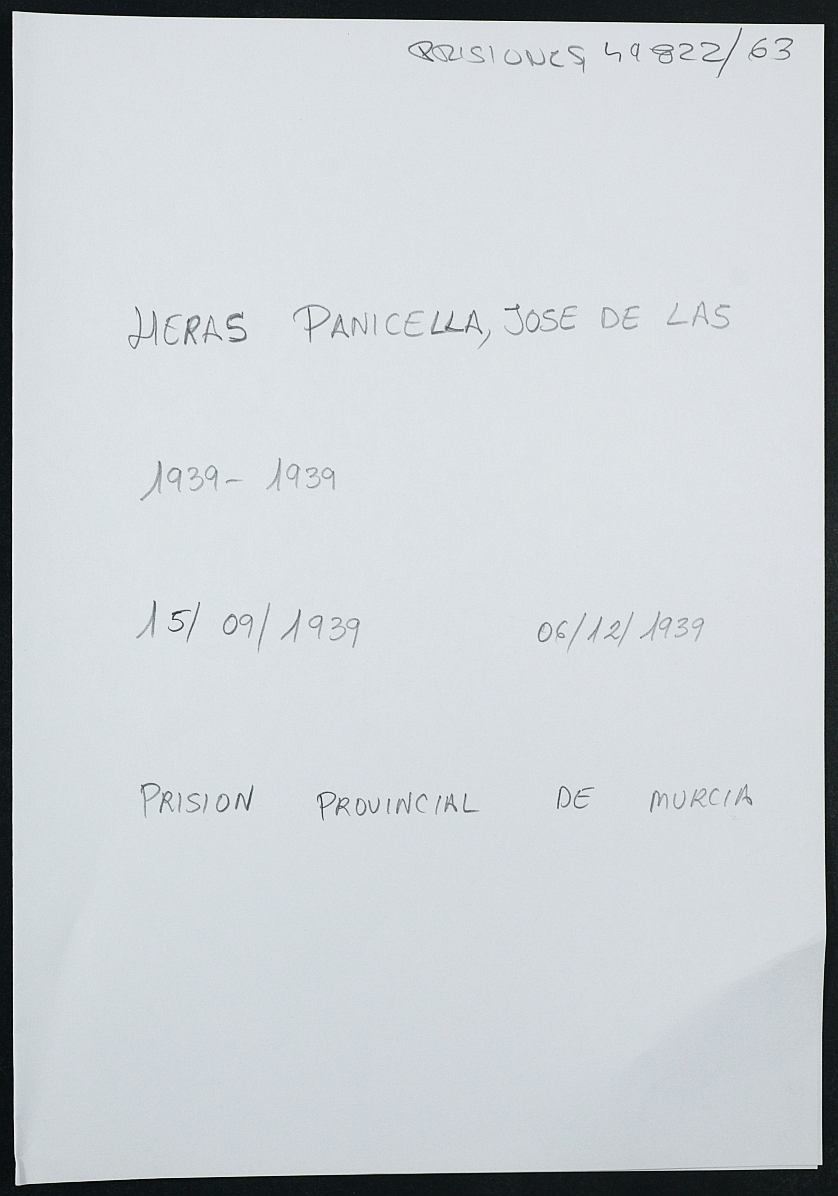 PRISIONES 49822/63
HERAS PANICELLA, JOSE DE LAS
1939- 1939
15/ 09/ 1939 06/12/1939
PRISION PROVINCIAL DE MURCIA